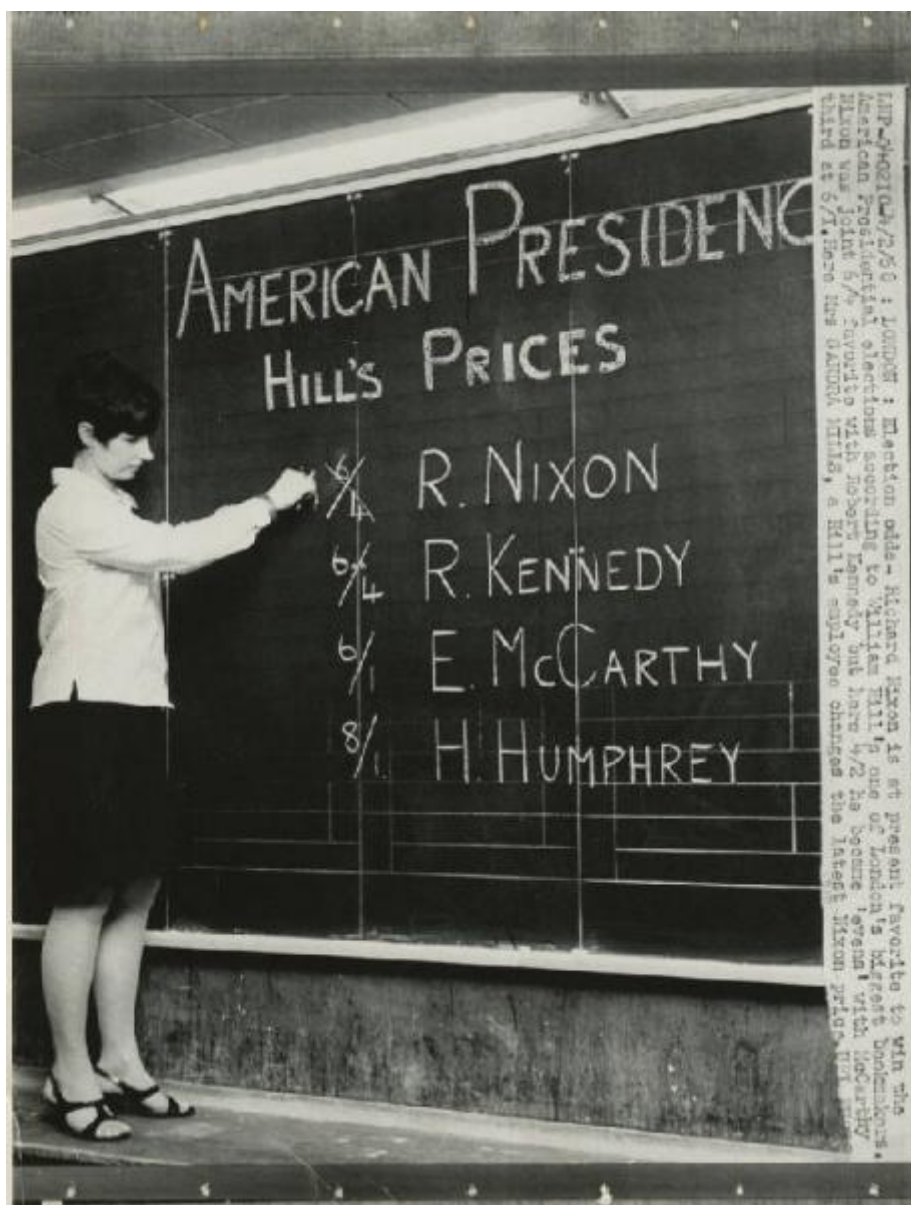 AMERICAN PRESIDENC
HILL'S PRICES
6/4 R. NIXON
6/4 R. KENNEDY
6/1 E. McCARTHY
8/1 H. HUMPHREY
LONDON : Election odds- Richard Nixon is at present favorite to win the
American Presidential elections according to William Hill's one of London's biggest bookmakers.
Nixon was joint 6/4 favorite with Robert Kennedy but here 4/2 he became 'evens' with McCarthy
third at 6/1.Here Mrs SANDRA MILLS, a Hill's employee changes the latest Nixon price.UPI